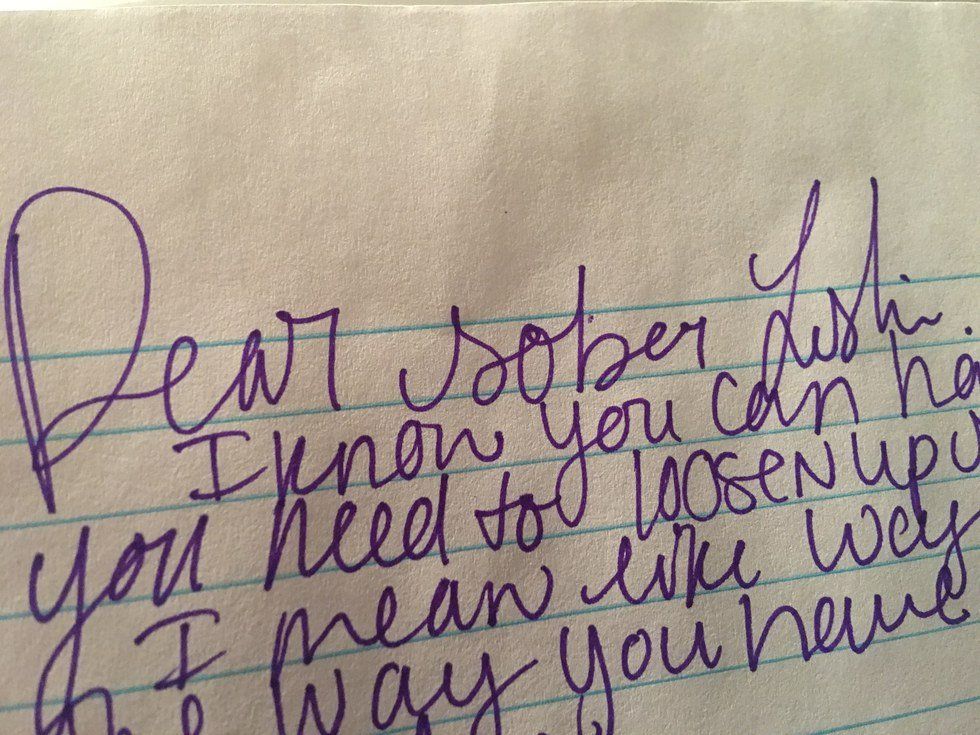 Dear sober
I know you can ha
you need to loosen up
I mean like way
way you have